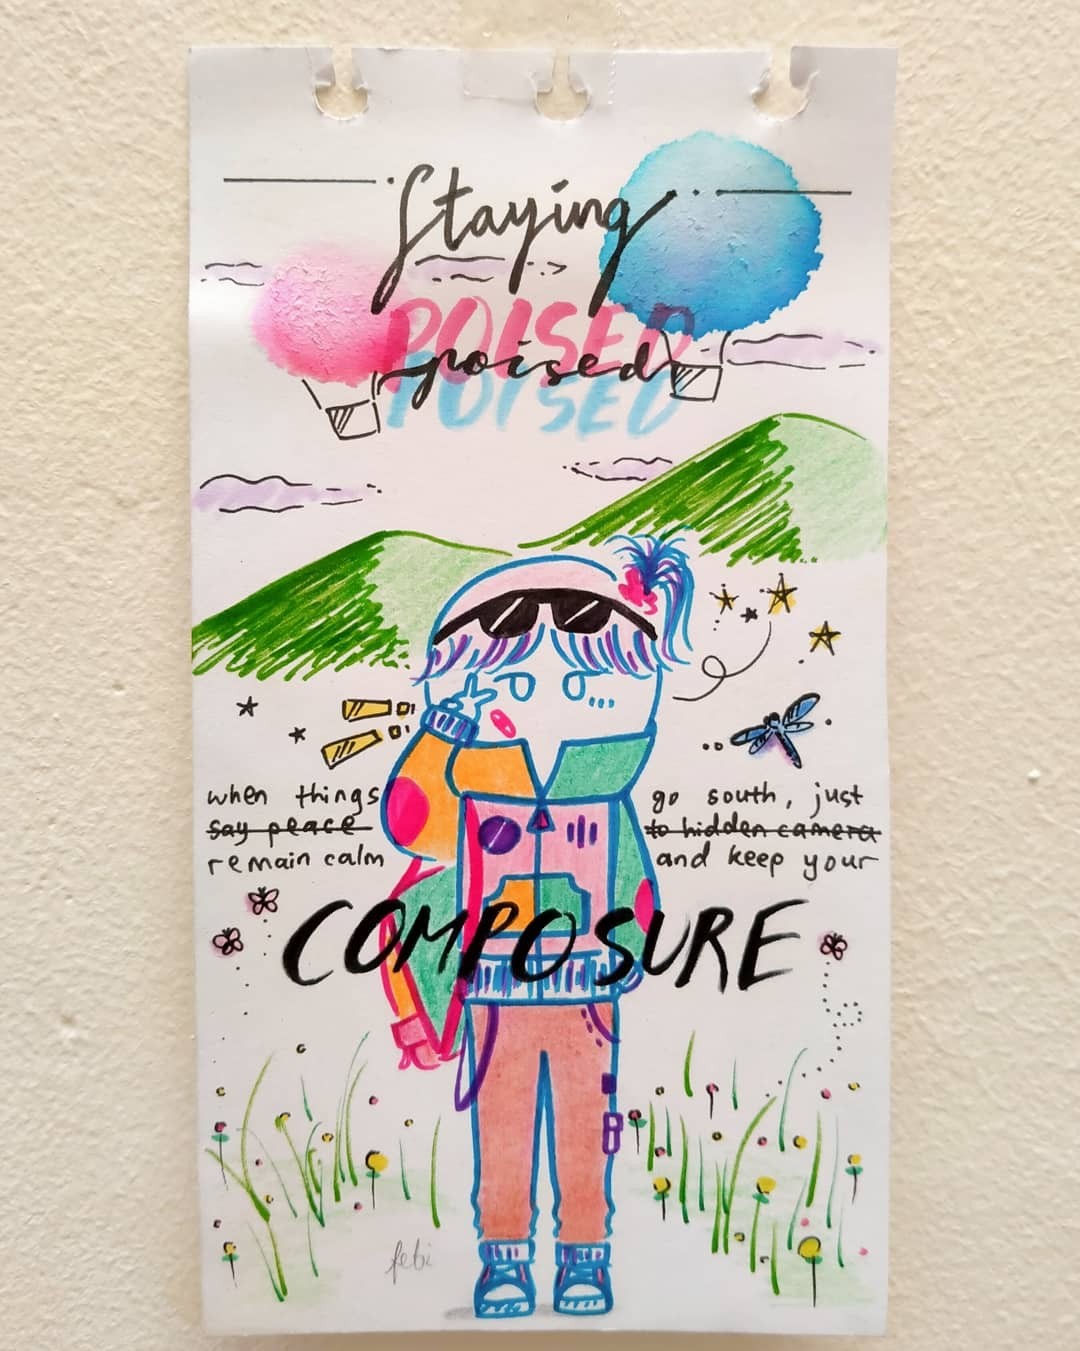 Staying
POISED
poised
POISED
when things go south, just
say peace to hidden camera
remain calm and keep your
COMPOSURE
febi